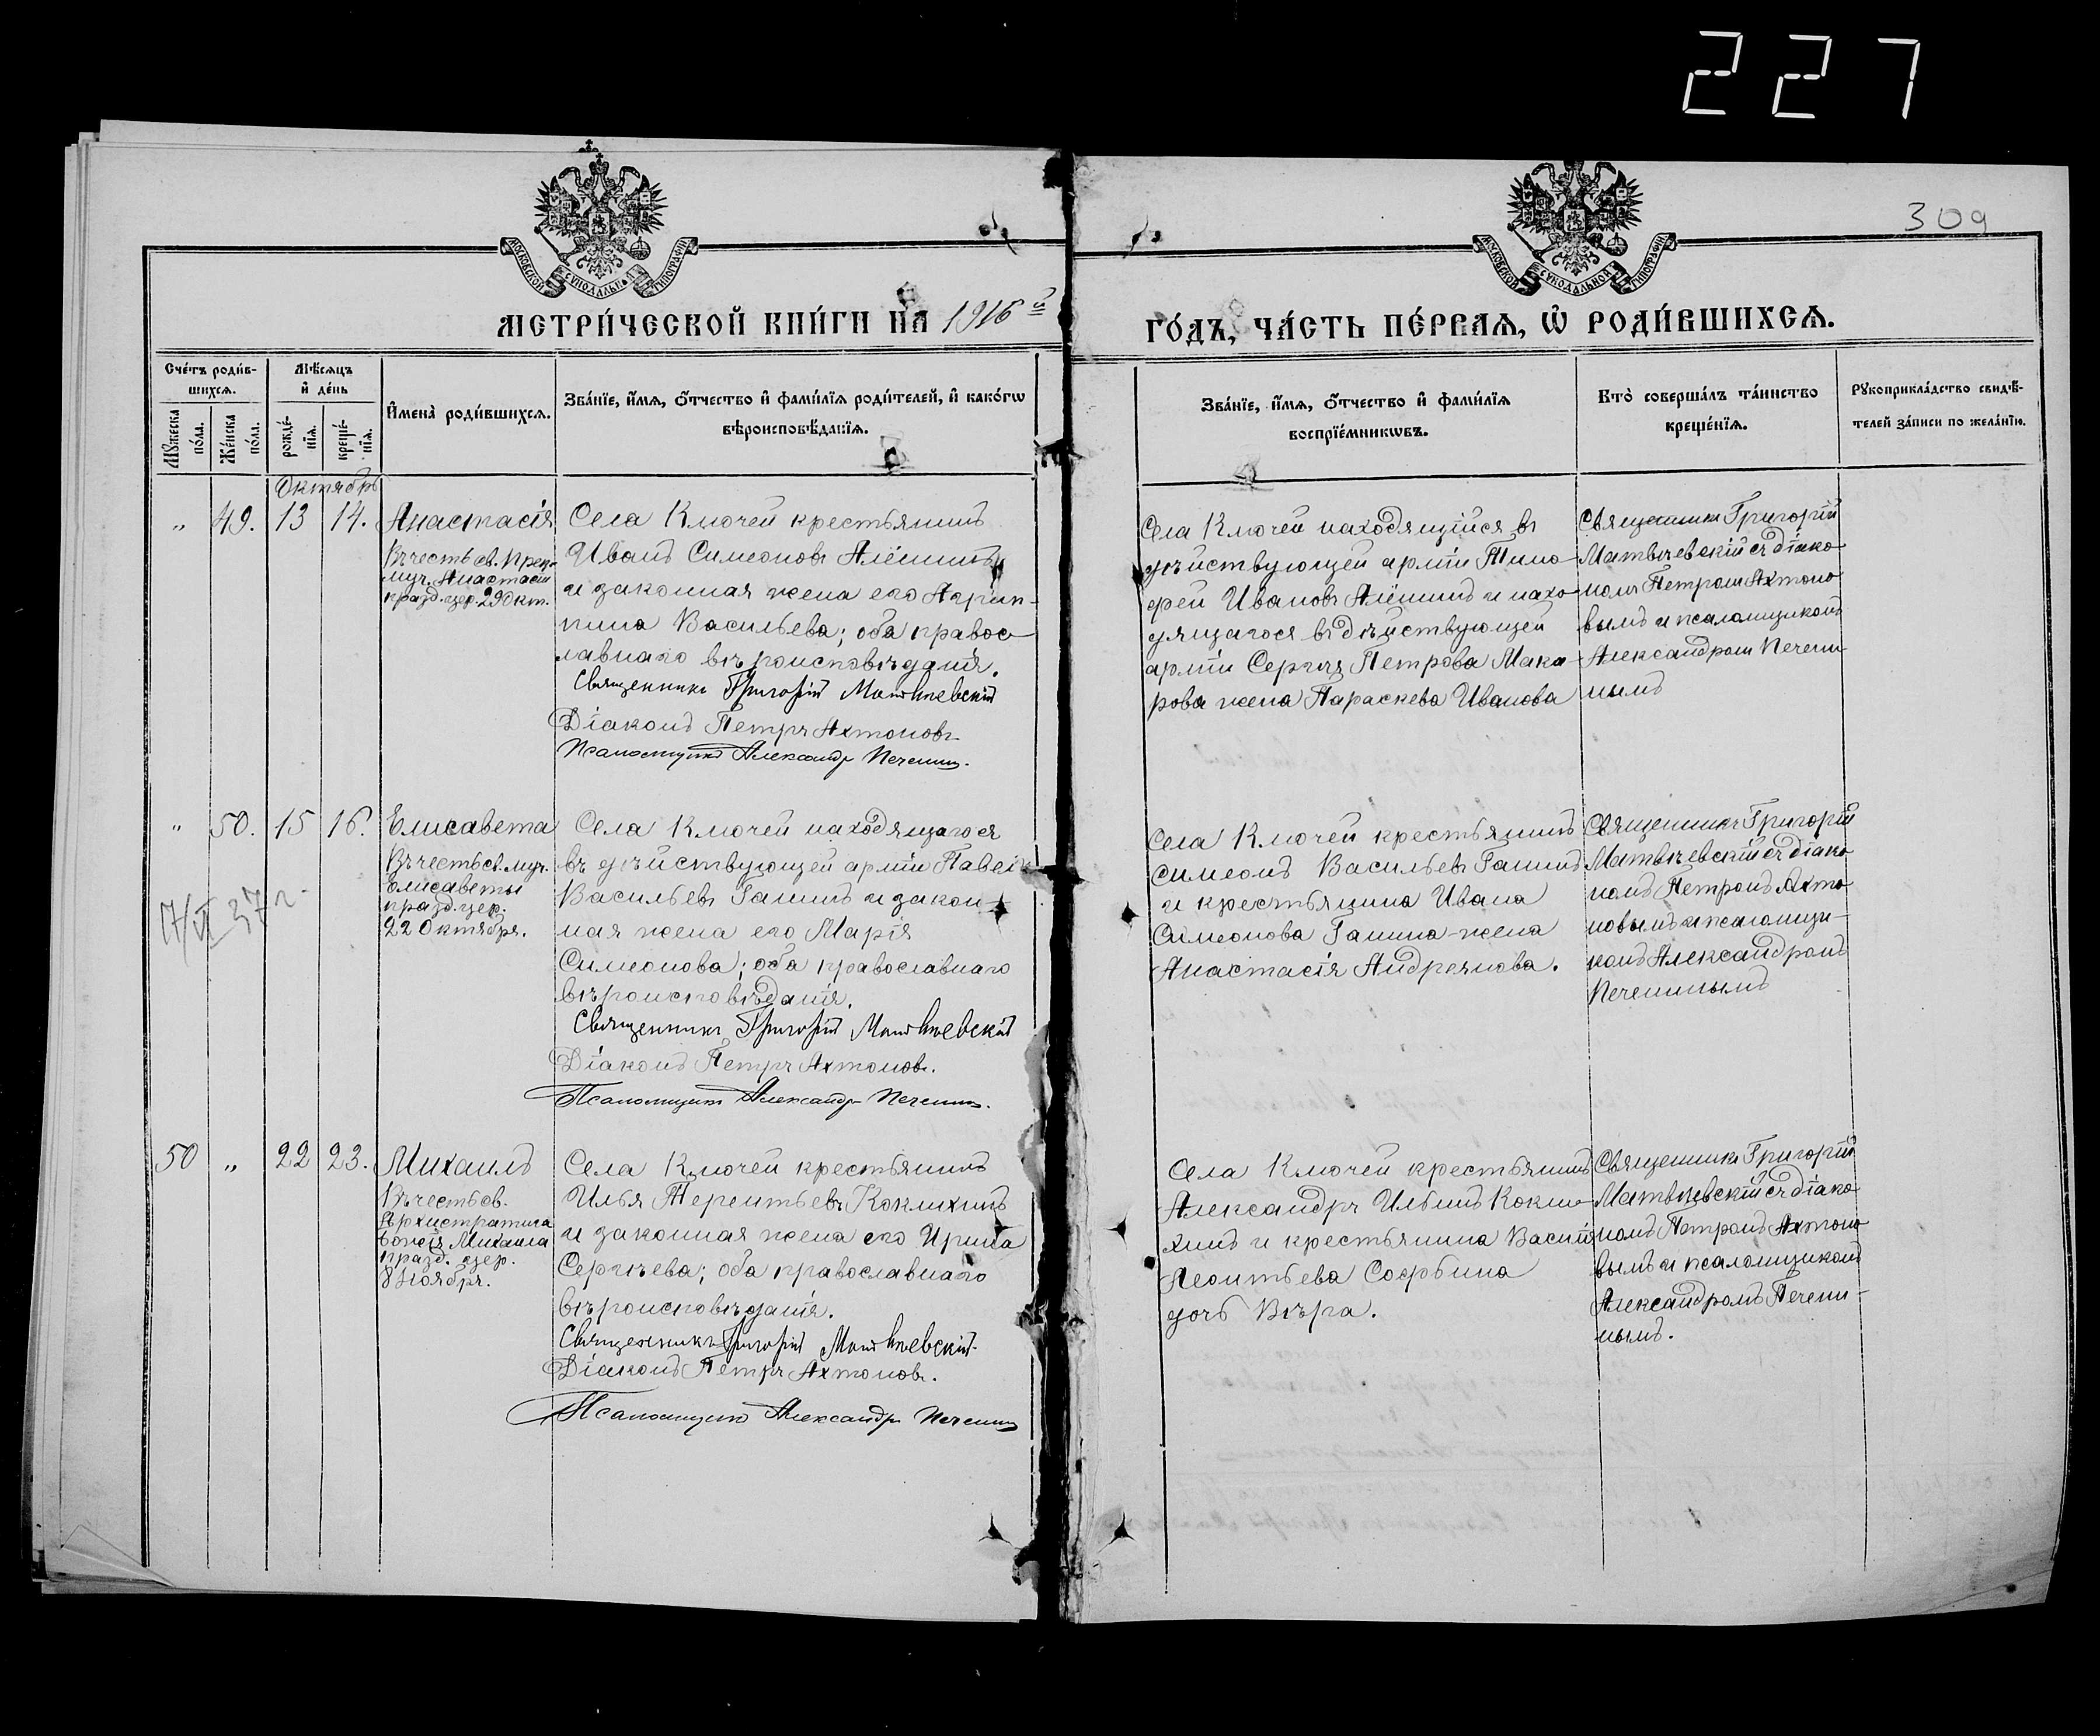 227
309
МОСКОВСКОЙ СѴНОДАЛЬНОЙ ТИПОГРАФІИ
МОСКОВСКОЙ СѴНОДАЛЬНОЙ ТИПОГРАФІИ
МЕТРИ́ЧЕСКОЙ КНИ́ГИ НА 1916й
ГО́ДЪ, ЧА́СТЬ ПЕ́РВАЯ, Ѡ҆ РОДИ́ВШИХСЯ.
Сче́тъ роди́в-
шихся.
Мꙋ́жеска по́ла.
Же́нска по́ла.
Мѣ́сяцъ
и҆ де́нь
рожде́-
нїя.
креще́-
нїя.
И҆мена̀ роди́вшихся.
Зва́нїе, и҆́мя, ѻ҆́тчество и҆ фами́лїя роди́телей, и҆ како́гѡ
вѣроисповѣ́данїя.
Зва́нїе, и҆́мя, ѻ҆́тчество и҆ фами́лїя
воспрїе́мникѡвъ.
Кто̀ соверша́лъ та́инство
креще́нїя.
Рꙋкоприкла́дство свидѣ́-
телей за́писи по жела́нїю.
Октябрь
„ 49. 13 14.
Анастасія
Въ честь св. Преп.
муч. Анастасіи
празд. цер. 29 Окт.
Села Ключей крестьянинъ
Иванъ Симеоновъ Алёшинъ
и законная жена его Агрип-
пина Васильева; оба правос-
лавнаго вѣроисповѣданія.
Священникъ Григорій Матвѣевскій
Діаконъ Петръ Ахтоновъ
Псаломщикъ Александръ Печенинъ.
Села Ключей находящійся въ
дѣйствующей арміи Тимо-
фей Ивановъ Алёшинъ и нахо-
дящагося въ дѣйствующей
арміи Сергія Петрова Мака-
рова жена Параскева Иванова
Священникъ Григорій
Матвѣевскій съ діако-
номъ Петромъ Ахтоно-
вымъ и псаломщикомъ
Александромъ Печени-
нымъ
„ 50. 15 16.
Елисавета
Въ честь св. муч.
Елисаветы
празд. цер.
22 Октября.
37 г.
Села Ключей находящагося
въ дѣйствующей арміи Павелъ
Васильевъ Ганинъ и закон-
ная жена его Марія
Симеонова; оба православнаго
вѣроисповѣданія.
Священникъ Григорій Матвѣевскій
Діаконъ Петръ Ахтоновъ.
Псаломщикъ Александръ Печенинъ.
Села Ключей крестьянинъ
Симеонъ Васильевъ Ганинъ
и крестьянина Ивана
Симеонова Ганина жена
Анастасія Андреянова.
Священникъ Григорій
Матвѣевскій съ діако-
номъ Петромъ Ахто-
новымъ и псаломщи-
комъ Александромъ
Печенинымъ
50 „ 22 23.
Михаилъ
Въ честь св.
Архистратига
Божія Михаила
празд. цер.
8 Ноября.
Села Ключей крестьянинъ
Илья Терентьевъ Коклихинъ
и законная жена его Ирина
Сергѣева; оба православнаго
вѣроисповѣданія.
Священникъ Григорій Матвѣевскій
Діаконъ Петръ Ахтоновъ.
Псаломщикъ Александръ Печенинъ
Села Ключей крестьянинъ
Александръ Ильинъ Кокли-
хинъ и крестьянина Василія
Леонтьева
дочь Вѣра.
Священникъ Григорій
Матвѣевскій съ діако-
номъ Петромъ Ахтоно-
вымъ и псаломщикомъ
Александромъ Печени-
нымъ.